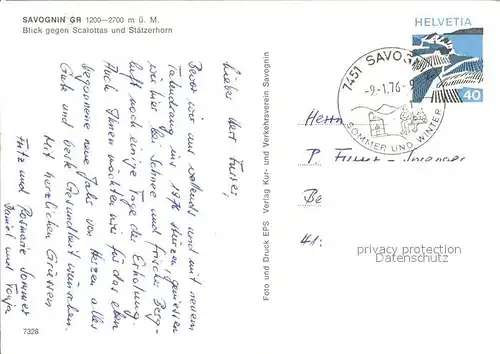 SAVOGNIN GR 1200—2700 m ü. M.
Blick gegen Scalottas und Stätzerhorn
Lieber Herr Furrer,
Bevor wir uns vollends und mit neuem
Tatendrang ins 1976 stürzen, geniessen
wir hier bei Schnee und frischer Berg-
luft noch einige Tage der Erholung.
Auch Ihnen möchten wir für das eben
begonnene neue Jahr von Herzen alles
Gute und beste Gesundheit wünschen.
Mit herzlichen Grüssen
Fritz und Rosmarie Sommer
Daniel und Tonja
7328
Foto und Druck EPS Verlag Kur- und Verkehrsverein Savognin
HELVETIA
40
7451 SAVOG
-9.-1.76-9
SOMMER UND WINTER
Herrn
P. Furrer
Be
41:
privacy protection
Datenschutz